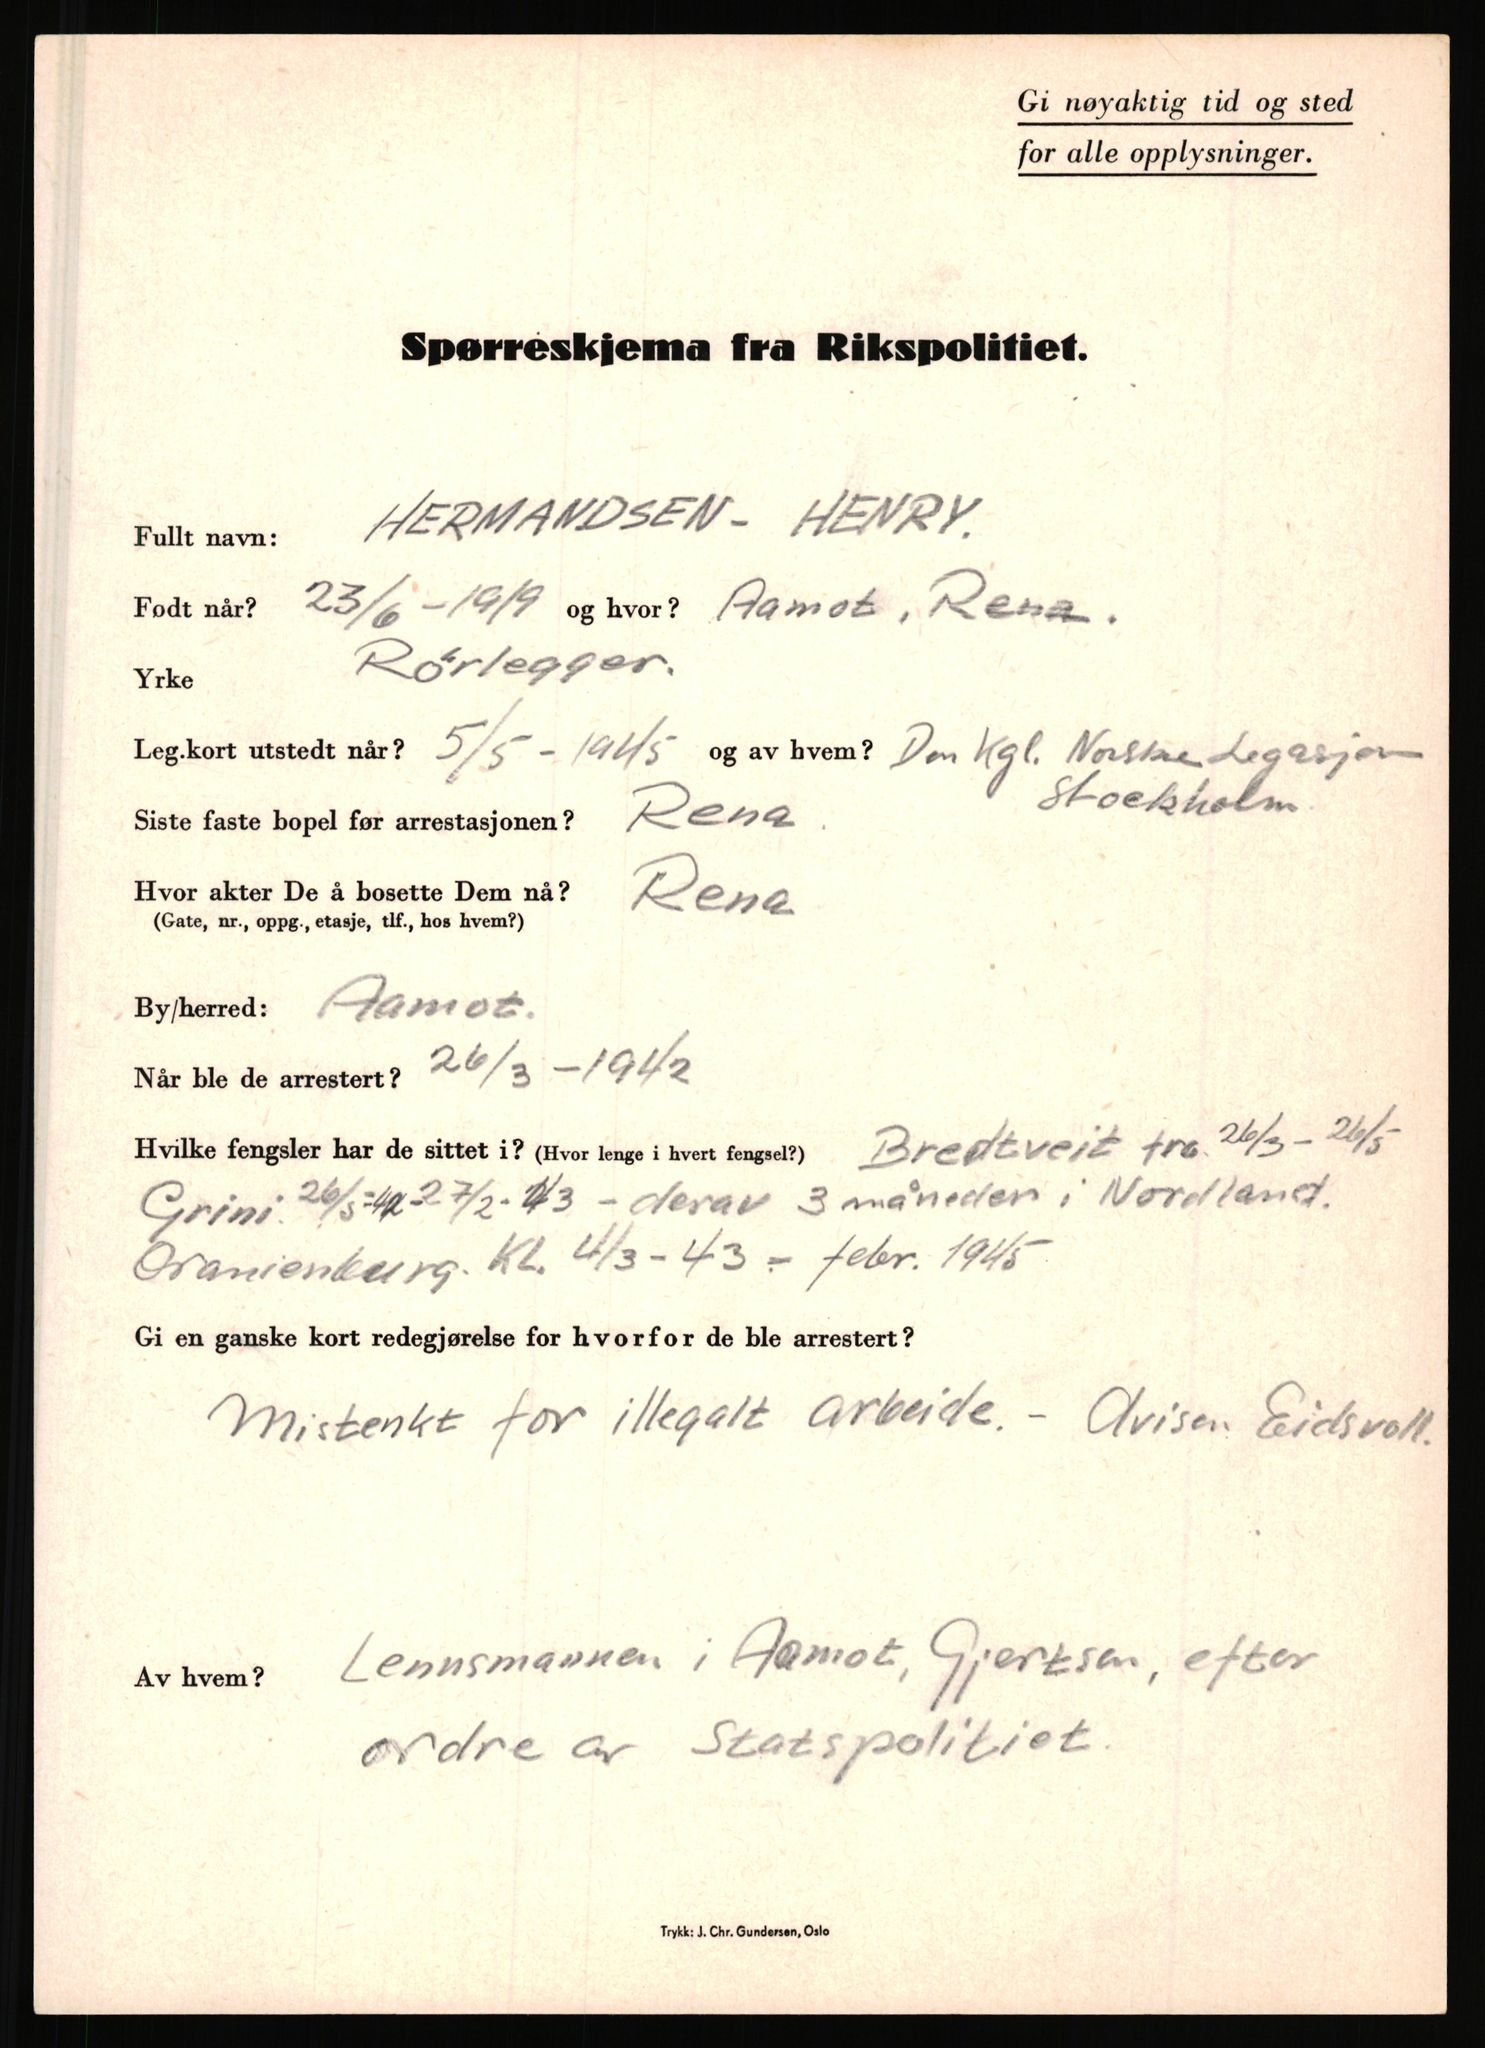 Gi nøyaktig tid og sted
for alle opplysninger.
Spørreskjema fra Rikspolitiet.
Fullt navn: HERMANDSEN - HENRY.
Født når? 23/6 - 1919 og hvor? Aamot, Rena.
Yrke Rörlegger.
Leg.kort utstedt når? 5/5 - 1945 og av hvem? Den Kgl. Norske Legasjon
Stockholm.
Siste faste bopel før arrestasjonen? Rena.
Hvor akter De å bosette Dem nå? Rena
(Gate, nr., oppg., etasje, tlf., hos hvem?)
By/herred: Aamot.
Når ble de arrestert? 26/3 - 1942
Hvilke fengsler har de sittet i? (Hvor lenge i hvert fengsel?) Bredtveit fra 26/3 - 26/5
Grini. 26/5 - 42 - 27/2 - 43 - derav 3 måneder i Nordland.
Oranienburg. KL. 4/3 - 43 - febr. 1945
Gi en ganske kort redegjørelse for hvorfor de ble arrestert?
Mistenkt for illegalt arbeide. - Avisen Eidsvoll.
Av hvem? Lennsmannen i Aamot, Gjertsen, efter
ordre av Statspolitiet.
Trykk: J. Chr. Gundersen, Oslo